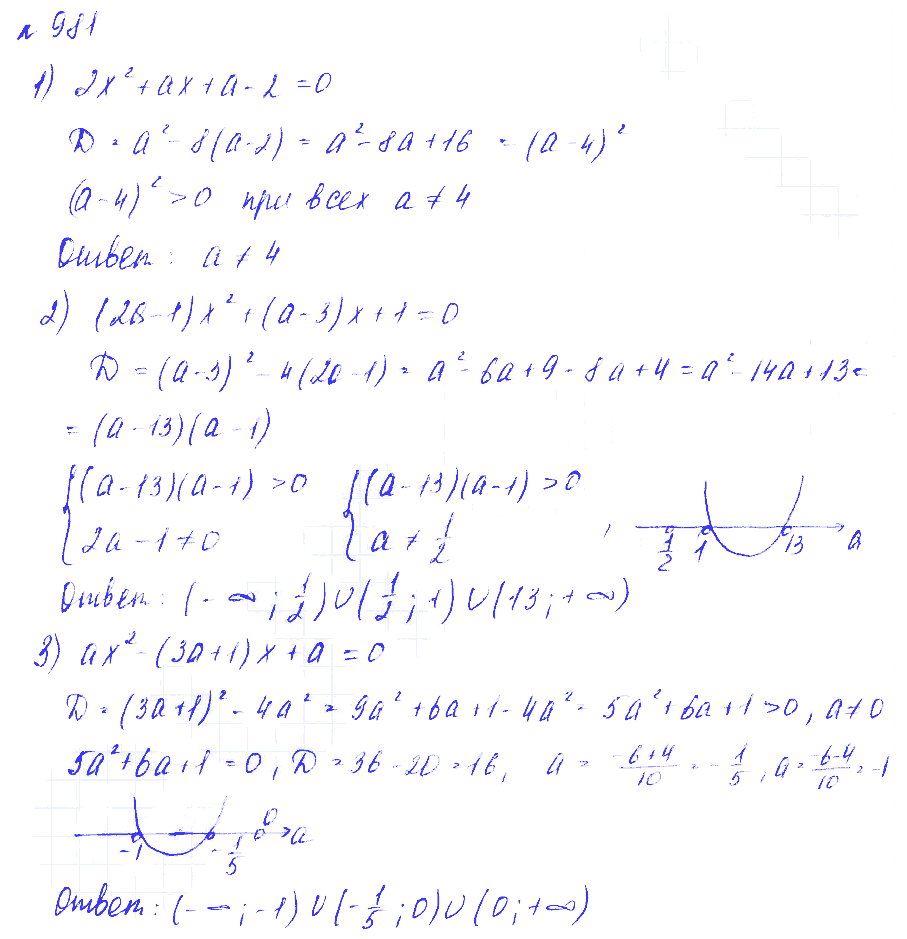 № 981
1) 2x² + ax + a - 2 = 0
D = a² - 8(a-2) = a² - 8a + 16 = (a-4)²
(a-4)² > 0 при всех a ≠ 4
Ответ: a ≠ 4
2) (2a-1)x² + (a-3)x + 1 = 0
D = (a-3)² - 4(2a-1) = a² - 6a + 9 - 8a + 4 = a² - 14a + 13 =
= (a-13)(a-1)
{(a-13)(a-1) > 0 {(a-13)(a-1) > 0
{2a-1 ≠ 0 {a ≠ 1/2 , 1/2 1 13 a
Ответ: (-∞; 1/2) ∪ (1/2; 1) ∪ (13; +∞)
3) ax² - (3a+1)x + a = 0
D = (3a+1)² - 4a² = 9a² + 6a + 1 - 4a² = 5a² + 6a + 1 > 0, a ≠ 0
5a² + 6a + 1 = 0, D = 36 - 20 = 16, a = (-6+4)/10 = -1/5, a = (-6-4)/10 = -1
-1 -1/5 0 a
Ответ: (-∞; -1) ∪ (-1/5; 0) ∪ (0; +∞)